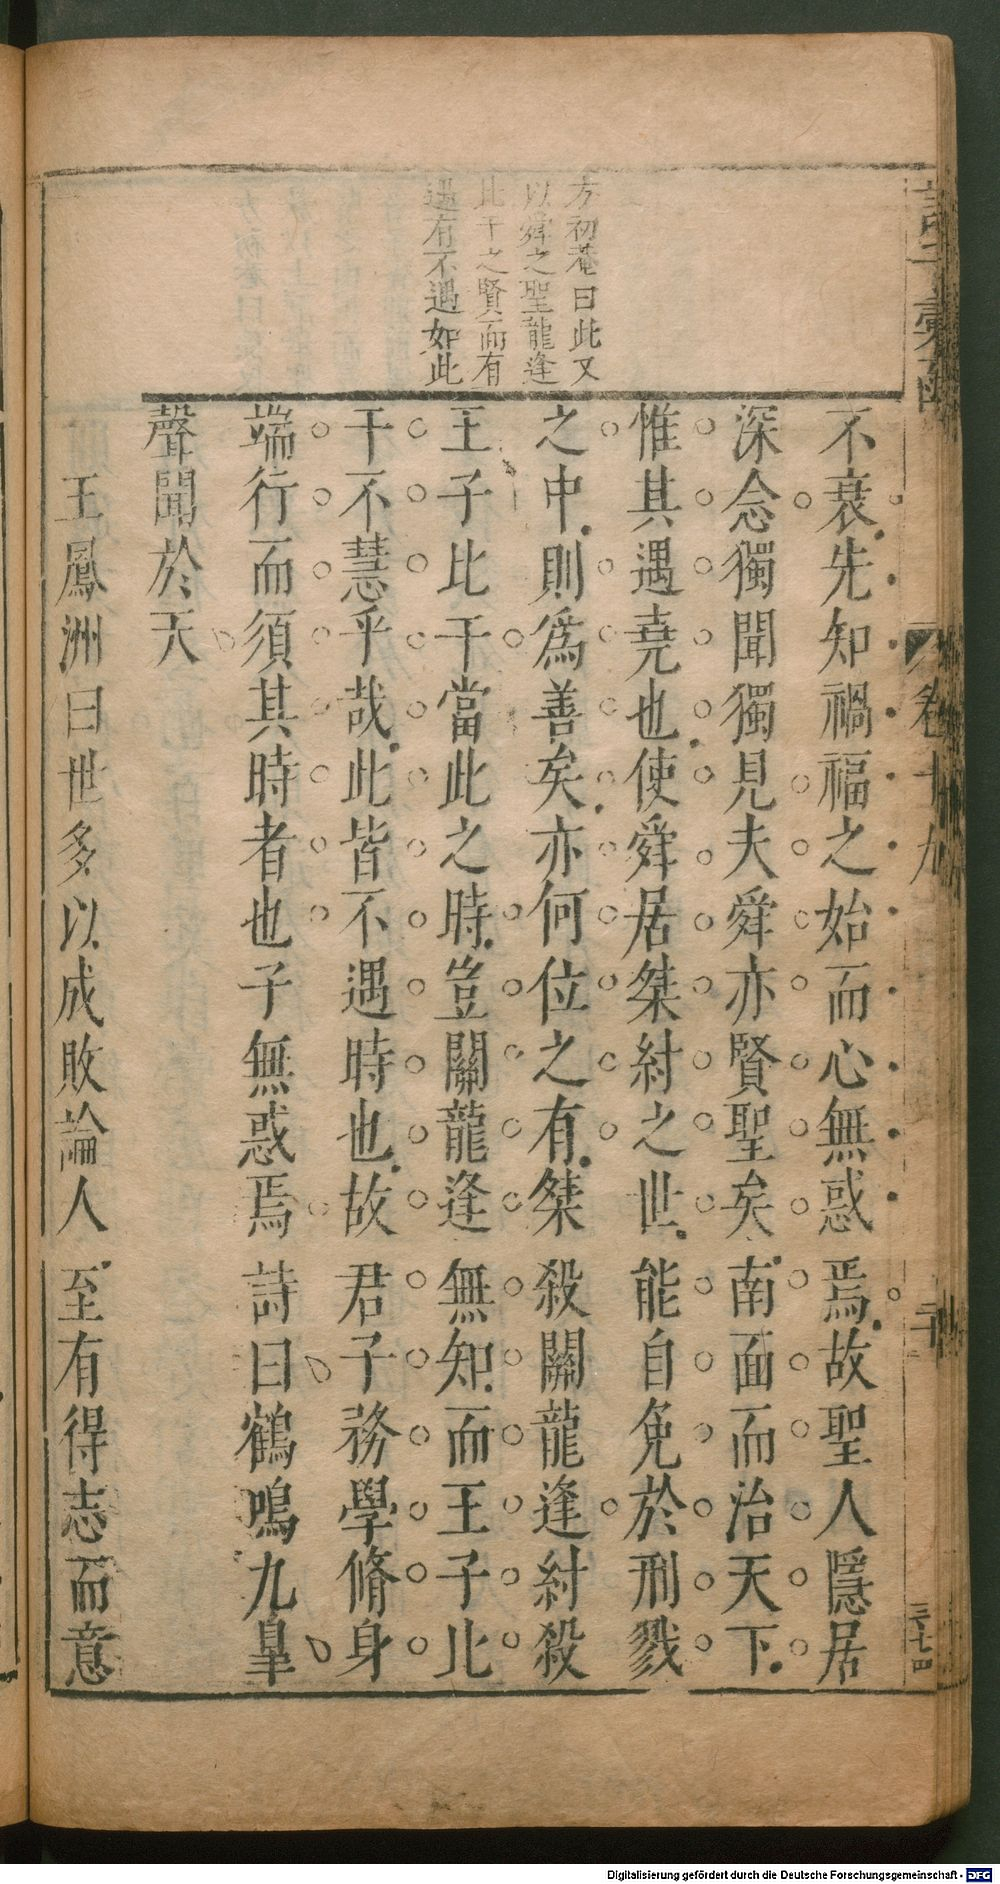 方初菴曰此又
以舜之聖龍逢
比干之賢而有
遇有不遇如此
不衰先知禍福之始而心無惑焉故聖人隱居
深念獨聞獨見夫舜亦賢聖矣南面而治天下
惟其遇堯也使舜居桀紂之世能自免於刑戮
之中則爲善矣亦何位之有桀殺關龍逢紂殺
王子比干當此之時豈關龍逢無知而王子比
干不慧乎哉此皆不遇時也故君子務學脩身
端行而須其時者也子無惑焉詩曰鶴鳴九臯
聲聞於天
王鳳洲曰世多以成敗論人至有得志而意
卷十九
三七四
Digitalisierung gefördert durch die Deutsche Forschungsgemeinschaft - DFG